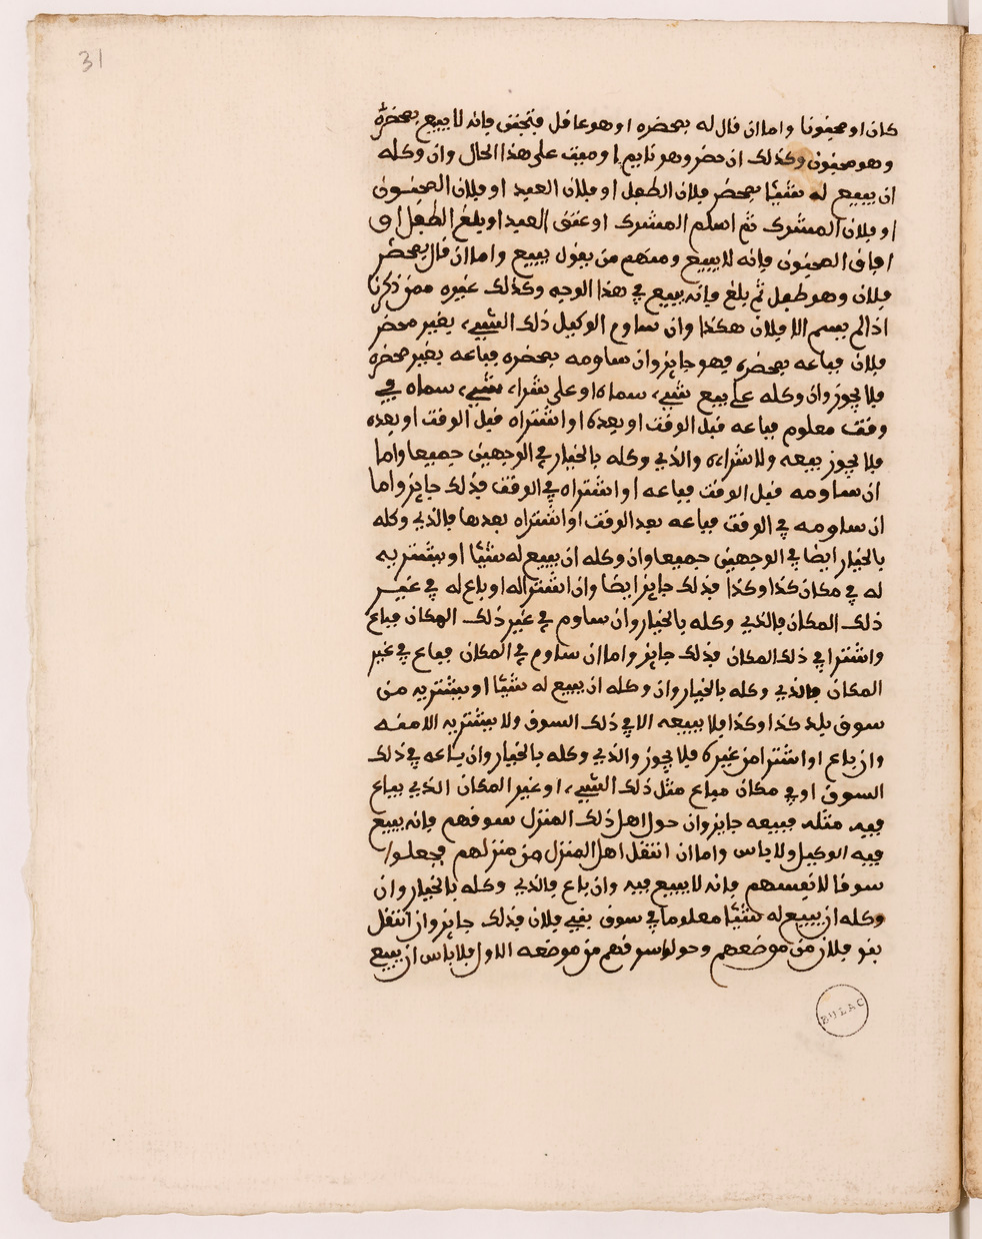 31
كان او مجنونا واما ان قال له بمحضره او وهو عاقل فتجنن فانه لا يبيع بمحضره
وهو مجنون وكذلك ان حضر وهو نايم او ميت على هذا الحال وان وكله
ان يبيع له شيئا بمحضر فلان الطفل او فلان العبد او فلان المجنون
او فلان المشرك ثم اسلم المشرك او عتق العبد او بلغ الطفل او
افاق المجنون فانه لا يبيع ومنهم من يقول يبيع واما ان قال بمحضر
فلان وهو طفل ثم بلغ فانه يبيع في هذا الوجه وكذلك غيره ممن ذكرنا
اذا لم يسم الا فلان هكذا وان ساوم الوكيل ذلك الشيء بغير محضر
فلان فباعه بمحضره فهو جايز وان ساومه بمحضره فباعه بغير محضره
فلا يجوز وان وكله على بيع شيء سماه او على شراء شيء سماه في
وقت معلوم فباعه قبل الوقت او بعده او اشتراه قبل الوقت او بعده
فلا يجوز بيعه ولا شراءه والذي وكله بالخيار في الوجهين جميعا واما
ان ساومه قبل الوقت فباعه او اشتراه في الوقت فذلك جايز واما
ان ساومه في الوقت فباعه بعد الوقت او اشتراه بعدها فالذي وكله
بالخيار ايضا في الوجهين جميعا وان وكله ان يبيع له شيئا او يشتريه
له في مكان كذا وكذا فذلك جايز ايضا وان اشترا له او باع له في غير
ذلك المكان فالذي وكله بالخيار وان ساوم في غير ذلك المكان فباع
واشترا في ذلك المكان فذلك جايز واما ان ساوم في المكان فباع في غير
المكان فالذي وكله بالخيار وان وكله ان يبيع له شيئا او يشتريه من
سوق بلد كذا وكذا فلا يبيعه الا في ذلك السوق ولا يشتريه الا منه
وان باع او اشترا من غيره فلا يجوز والذي وكله بالخيار وان باعه في ذلك
السوق او في مكان فباع مثل ذلك الشيء او غير المكان الذي يباع
فيه مثله فبيعه جايز وان حول اهل ذلك المنزل سوقهم فانه يبيع
فيه الوكيل ولا باس واما ان انتقل اهل المنزل من منزلهم فجعلوا
سوقا لانفسهم فانه لا يبيع فيه وان باع فالذي وكله بالخيار وان
وكله ان يبيع له شيئا معلوما في سوق بني فلان فذلك جايز وان انتقل
بنو فلان من موضعهم وحولوا سوقهم من موضعه الاول فلا باس ان يبيع
BULAC